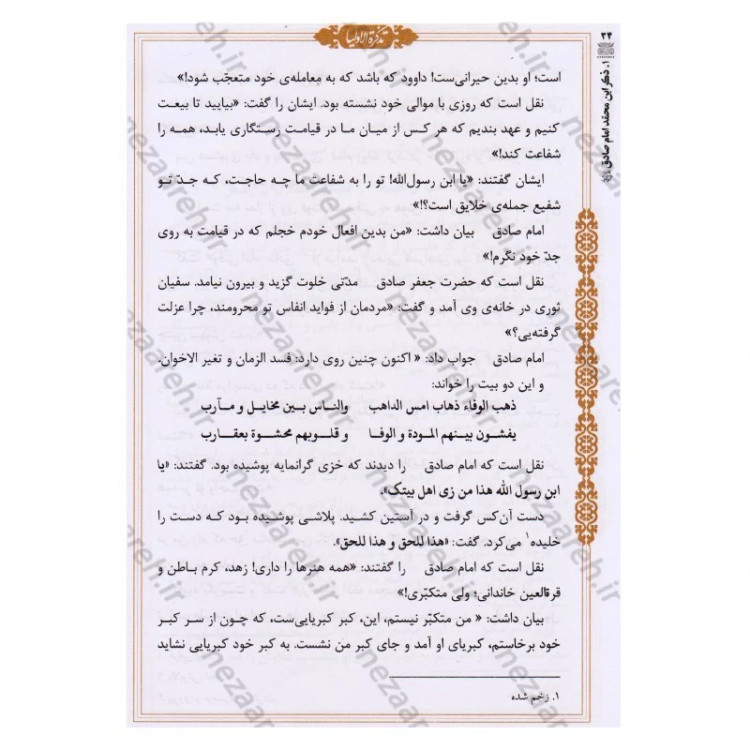 تذکرة الاولیا
۲۴
۱. ذکر ابن محمّد امام صادق
است؛ او بدین حیرانی‌ست! داوود که باشد که به معامله‌ی خود متعجّب شود!»
نقل است که روزی با موالی خود نشسته بود. ایشان را گفت: «بیایید تا بیعت
کنیم و عهد بندیم که هر کس از میان ما در قیامت رستگاری یابد، همه را
شفاعت کند!»
ایشان گفتند: «یا ابن رسول‌الله! تو را به شفاعت ما چه حاجت، که جدّ تو
شفیع جمله‌ی خلایق است؟!»
امام صادق بیان داشت: «من بدین افعال خودم خجلم که در قیامت به روی
جدّ خود نگرم!»
نقل است که حضرت جعفر صادق مدّتی خلوت گزید و بیرون نیامد. سفیان
ثوری در خانه‌ی وی آمد و گفت: «مردمان از فواید انفاس تو محرومند، چرا عزلت
گرفته‌یی؟»
امام صادق جواب داد: « اکنون چنین روی دارد: فسد الزمان و تغیر الاخوان.
و این دو بیت را خواند:
ذهب الوفاء ذهاب امس الذاهب والناس بین مخایل و مـآرب
یفشون بینهم المودة و الوفـا و قلوبهم محشوة بعقـارب
نقل است که امام صادق را دیدند که خزی گرانمایه پوشیده بود. گفتند: «یا
ابن رسول الله هذا من زی اهل بیتک».
دست آن‌کس گرفت و در آستین کشید. پلاشی پوشیده بود که دست را
خلیده۱ می‌کرد. گفت: «هذا للحق و هذا للحق».
نقل است که امام صادق را گفتند: «همه هنرها را داری! زهد، کرم باطن و
قرةالعین خاندانی؛ ولی متکبّری!»
بیان داشت: « من متکبّر نیستم، این، کبر کبریایی‌ست، که چون از سر کبر
خود برخاستم، کبریای او آمد و جای کبر من نشست. به کبر خود کبریایی نشاید
۱. زخم شده
nezaareh.ir